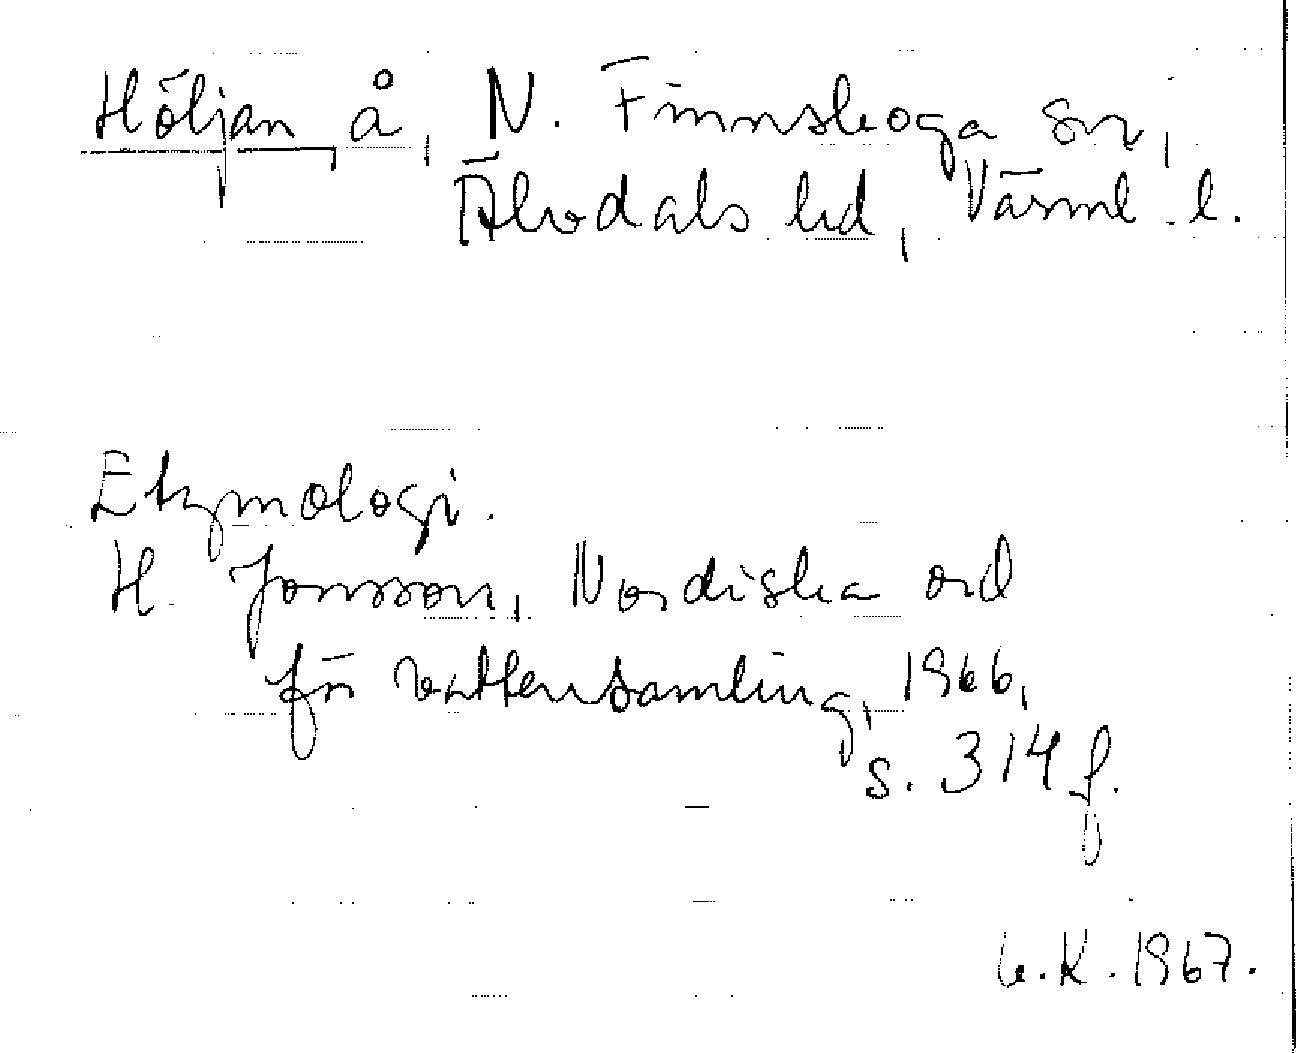 Höljan, å, N. Finnskoga sn,
Älvdals hd, Värml. l.
Etymologi.
H. Jonsson, Nordiska ord
för vattensamling, 1966,
s. 314 f.
K. 1967.